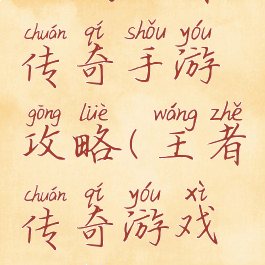 chuán qí shǒu yóu
传奇手游
gōng lüè wáng zhě
攻略(王者
chuán qí yóu xì
传奇游戏